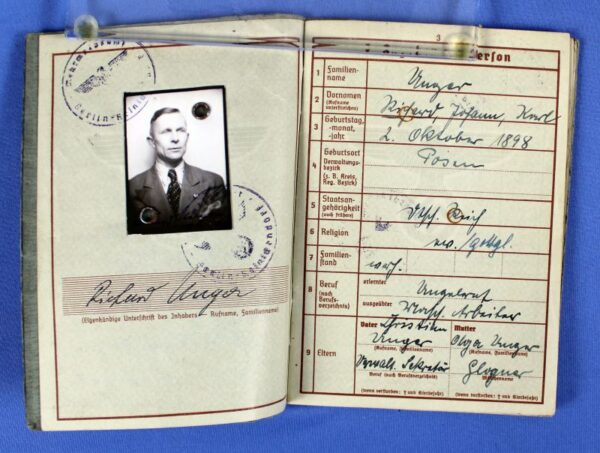 Richard Unger
(Eigenhändige Unterschrift des Inhabers — Rufname, Familienname)
3
Person
1 Familien-
name
Unger
2 Vornamen
(Rufname
unterstreichen)
Richard, Johann, Karl
3 Geburtstag,
-monat,
-jahr
2. Oktober 1898
4 Geburtsort
Verwaltungs-
bezirk
(z. B. Kreis,
Reg. Bezirk)
Posen
5 Staatsan-
gehörigkeit
(auch frühere)
Dtsch. Reich
6 Religion
ev. / gottgl.
7 Familien-
stand
verh.
8 Beruf
(nach
Berufs-
verzeichnis)
erlernter
Ungelernt
ausgeübter
Arbeiter
9 Eltern
Vater
Christian
Unger
(Rufname, Familienname)
Verwalt. Sekretär
Beruf (nach Berufsverzeichnis)
(wenn verstorben: † und Sterbejahr)
Mutter
Olga Unger
(Rufname, Familienname)
Glogner
Mädchenname
(wenn verstorben: † und Sterbejahr)